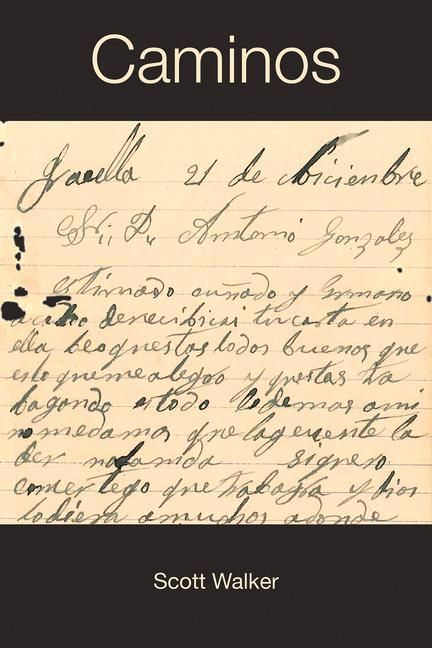 Caminos
21 de Diciembre
Sr. D. Antonio Gonzalez
estimado cuñado y ermano
derecibir tu carta en
ella beo questas todos buenos que
esto que me alegro y questas tra
bagando todo lo demas ami
no me da mas que la gente la
ber
que trabaja y dios
lo diera a muchos adonde
Scott Walker